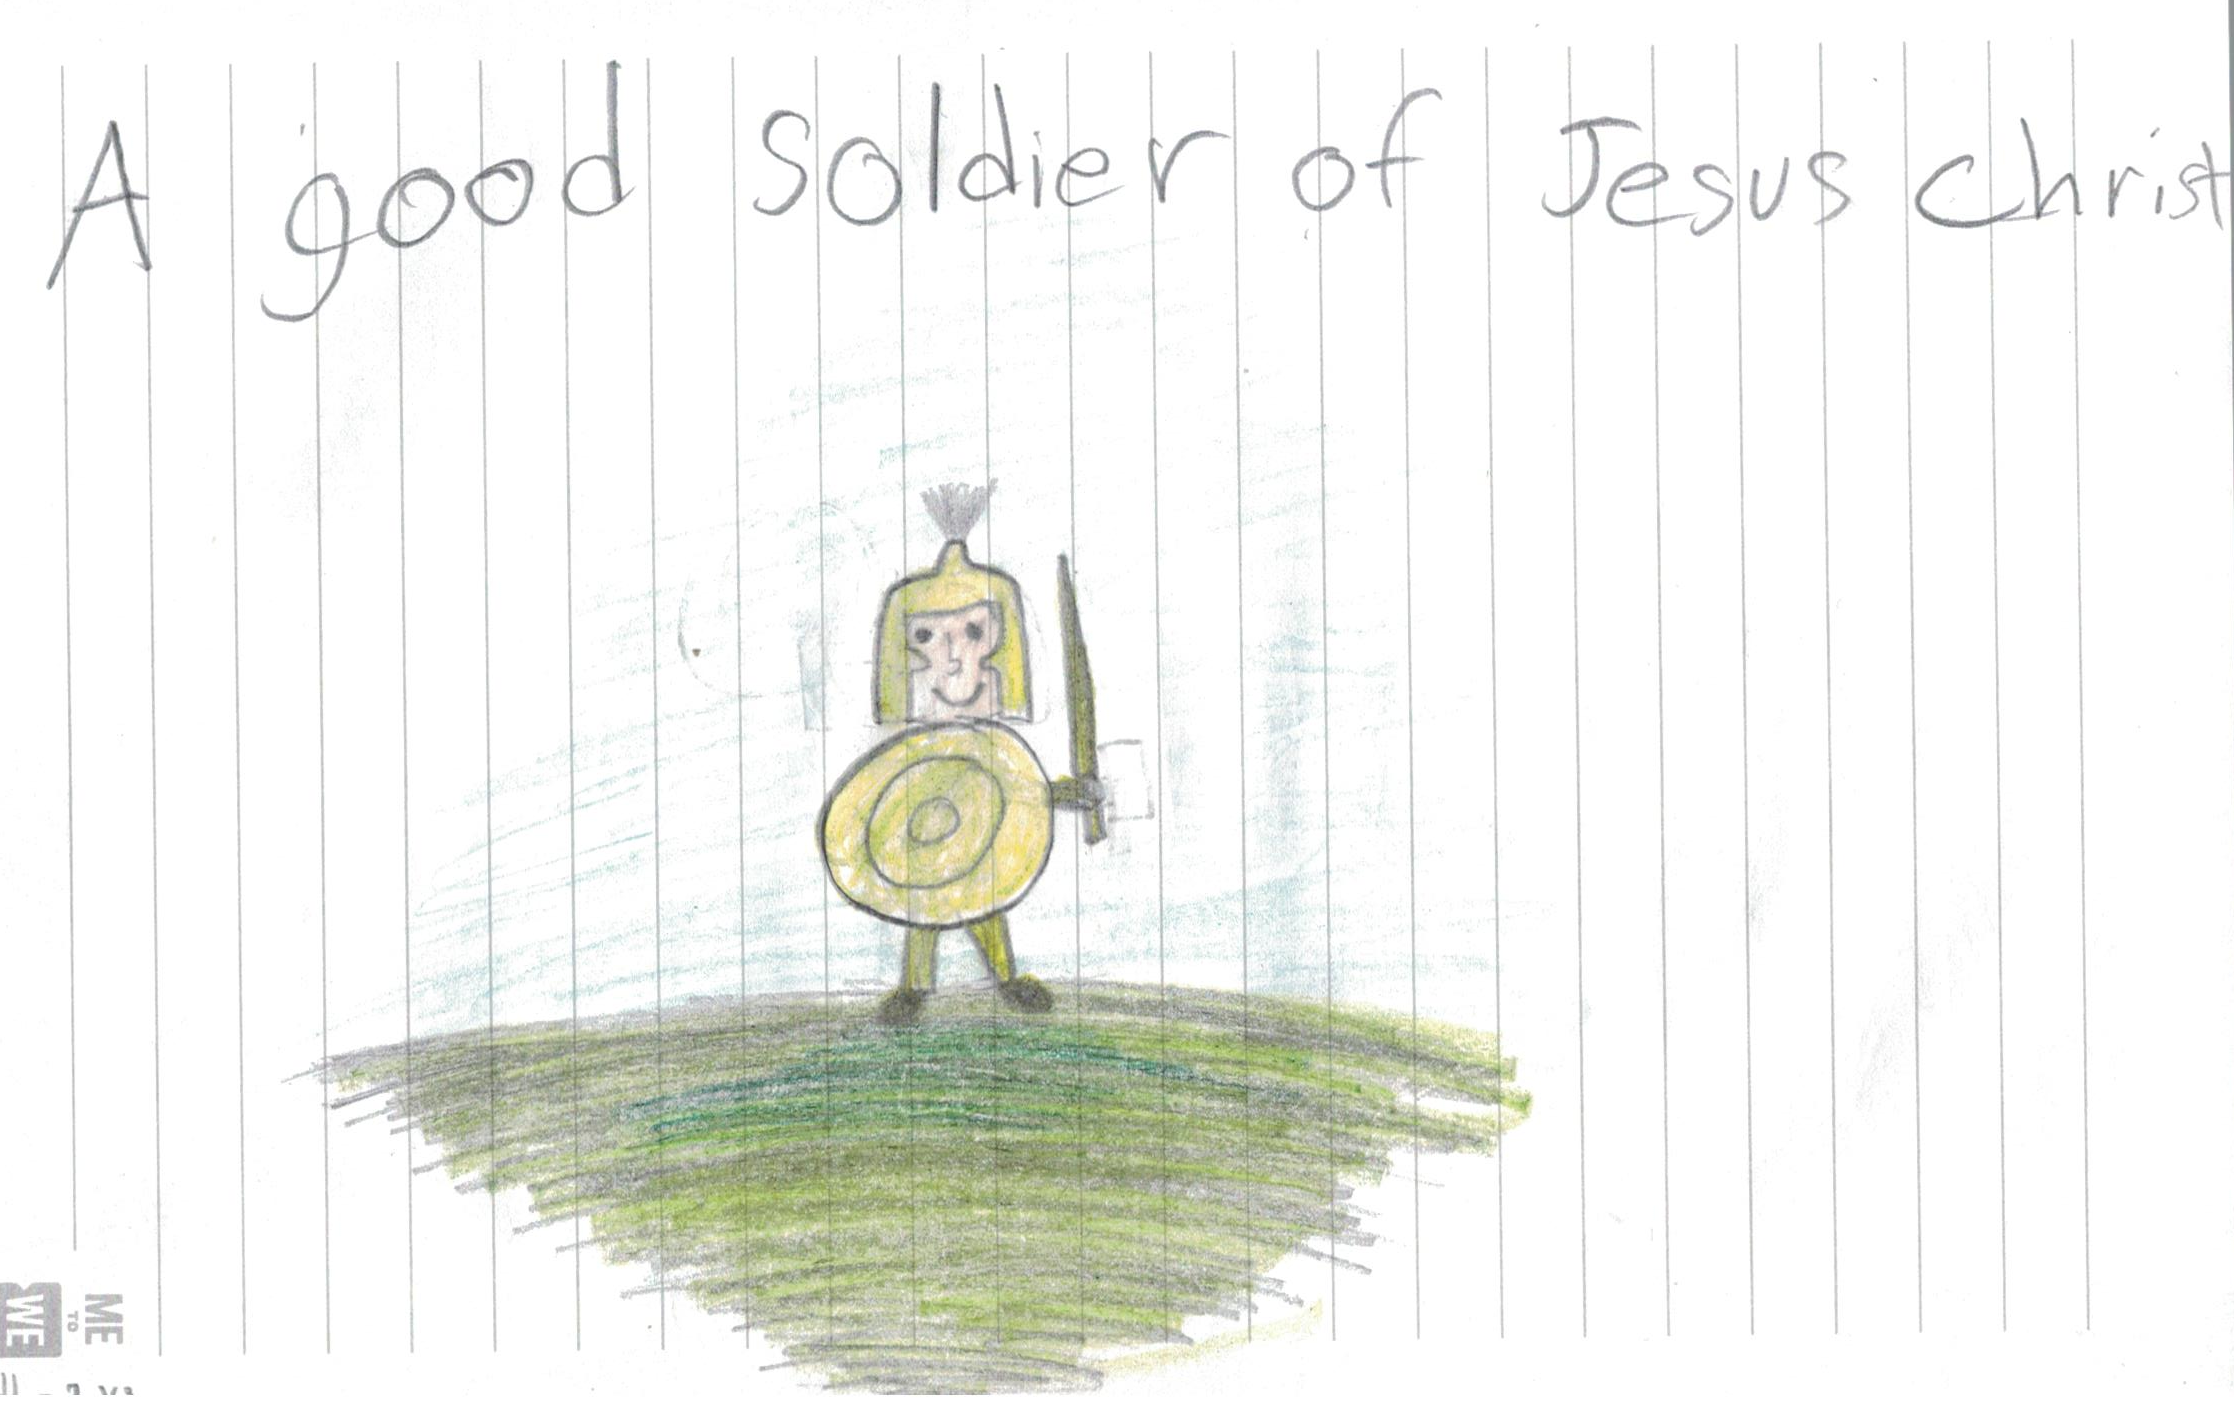 A good soldier of Jesus Christ
ME
TO
WE